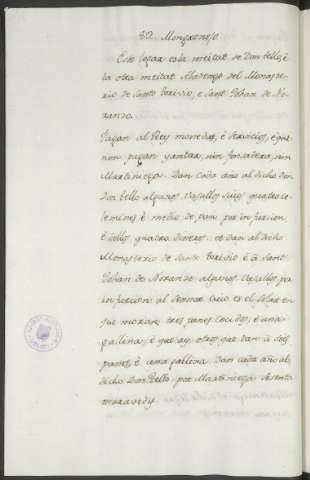 82. Monzoneso
Este logar es la meitat de Dan Tello, é
la otra meitat Abadengo del Monaste-
rio de Santo Toribio, e Sant Johan de No-
ranzo.
Pagan al Rey monedas, é servicios, é que
non pagan yantar, nin fonsadera, nin
Martiniega. Dan cada año al dicho Don
Don Tello algunos vasallos suyos quatro ce-
lemines, é medio de pan por infurcion
é dellos quatro dineros. et Dan al dicho
Monesterio de Santo Toribio é à Sant
Johan de Noranzo algunos vasallos por
infurcion al Sennor cuio es el solar en
que moraren tres panes cocidos, é una
gallina, é que ay otros que dan à seis
panes, é una gallina. Dan cada año al
dicho Don Tello por Martiniega sesenta
maravedis.